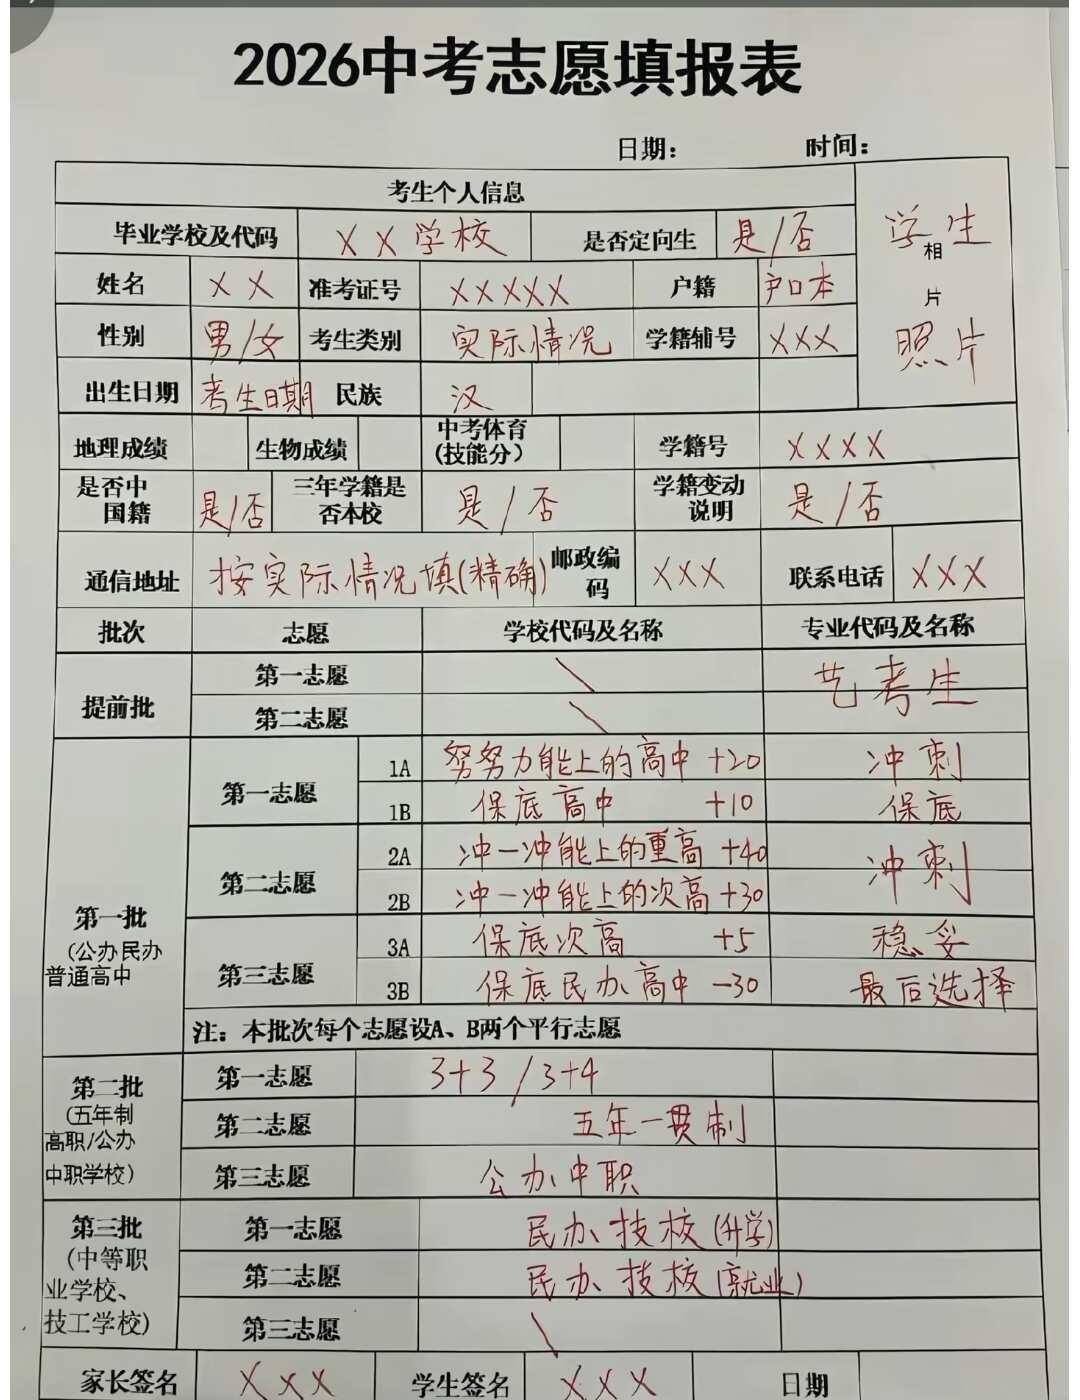 2026中考志愿填报表
日期： 时间：
考生个人信息
毕业学校及代码 XX学校 是否定向生 是/否
学生
相
片
照片
姓名 XX 准考证号 XXXXX 户籍 户口本
性别 男/女 考生类别 实际情况 学籍辅号 XXX
出生日期 考生日期 民族 汉
地理成绩 生物成绩 中考体育(技能分） 学籍号 XXXX
是否中国籍 是/否 三年学籍是否本校 是/否 学籍变动说明 是/否
通信地址 按实际情况填(精确) 邮政编码 XXX 联系电话 XXX
批次 志愿 学校代码及名称 专业代码及名称
提前批 第一志愿 \ 艺考生
第二志愿 \
第一批
(公办民办
普通高中
第一志愿 1A 努努力能上的高中 +20 冲刺
1B 保底高中 +10 保底
第二志愿 2A 冲一冲能上的重高 +40 冲刺
2B 冲一冲能上的次高 +30
第三志愿 3A 保底次高 +5 稳妥
3B 保底民办高中 -30 最后选择
注：本批次每个志愿设A、B两个平行志愿
第二批
(五年制
高职/公办
中职学校)
第一志愿 3+3/3+4
第二志愿 五年一贯制
第三志愿 公办中职
第三批
(中等职
业学校、
技工学校)
第一志愿 民办技校(升学)
第二志愿 民办技校(就业)
第三志愿 \
家长签名 XXX 学生签名 XXX 日期